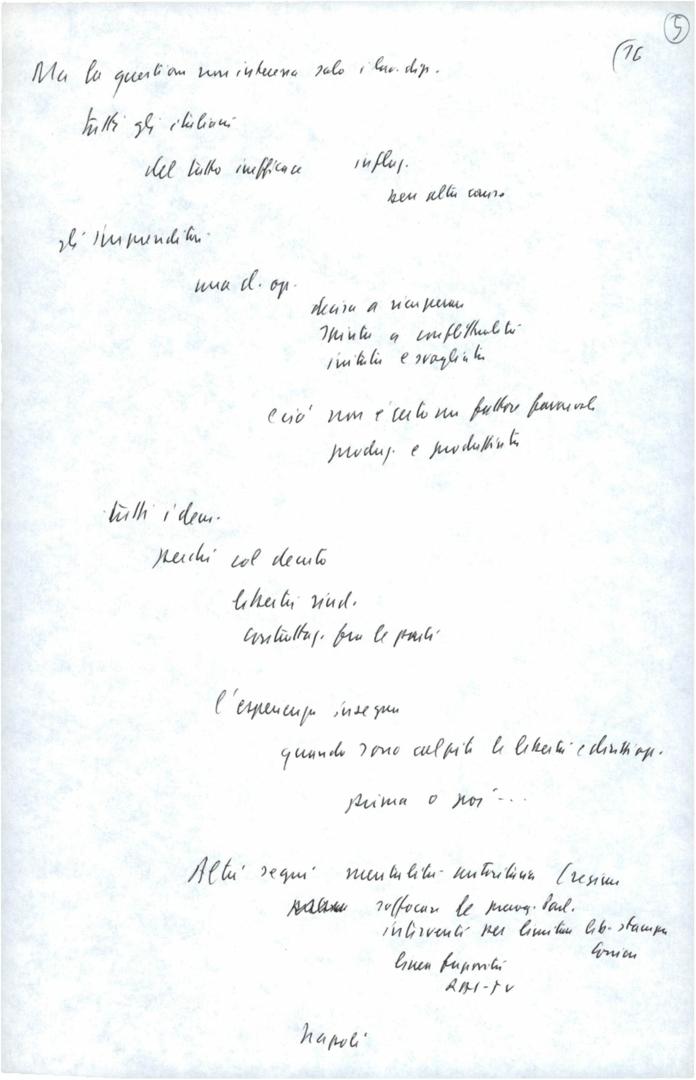 5
(16
Ma la question non interessa solo i lav. dip.
tutti gli italiani
del tutto inefficace inflaz.
ben altre cause
gli imprenditori
una cl. op.
decisa a recuperare
spinta a conflittualità
irritata e svogliata
e ciò non è certo un fattore favorevole
produz. e produttività
tutti i dem.
perché col decreto
libertà sind.
contrattaz. fra le parti
l'esperienza insegna
quando sono colpite le libertà e diritti op.
prima o poi - ...
Altri segni mentalità autoritaria (regime
soffocare le prerog. Parl.
interventi per limitare lib. stampa
Corriere
linea
RAI-TV
Napoli